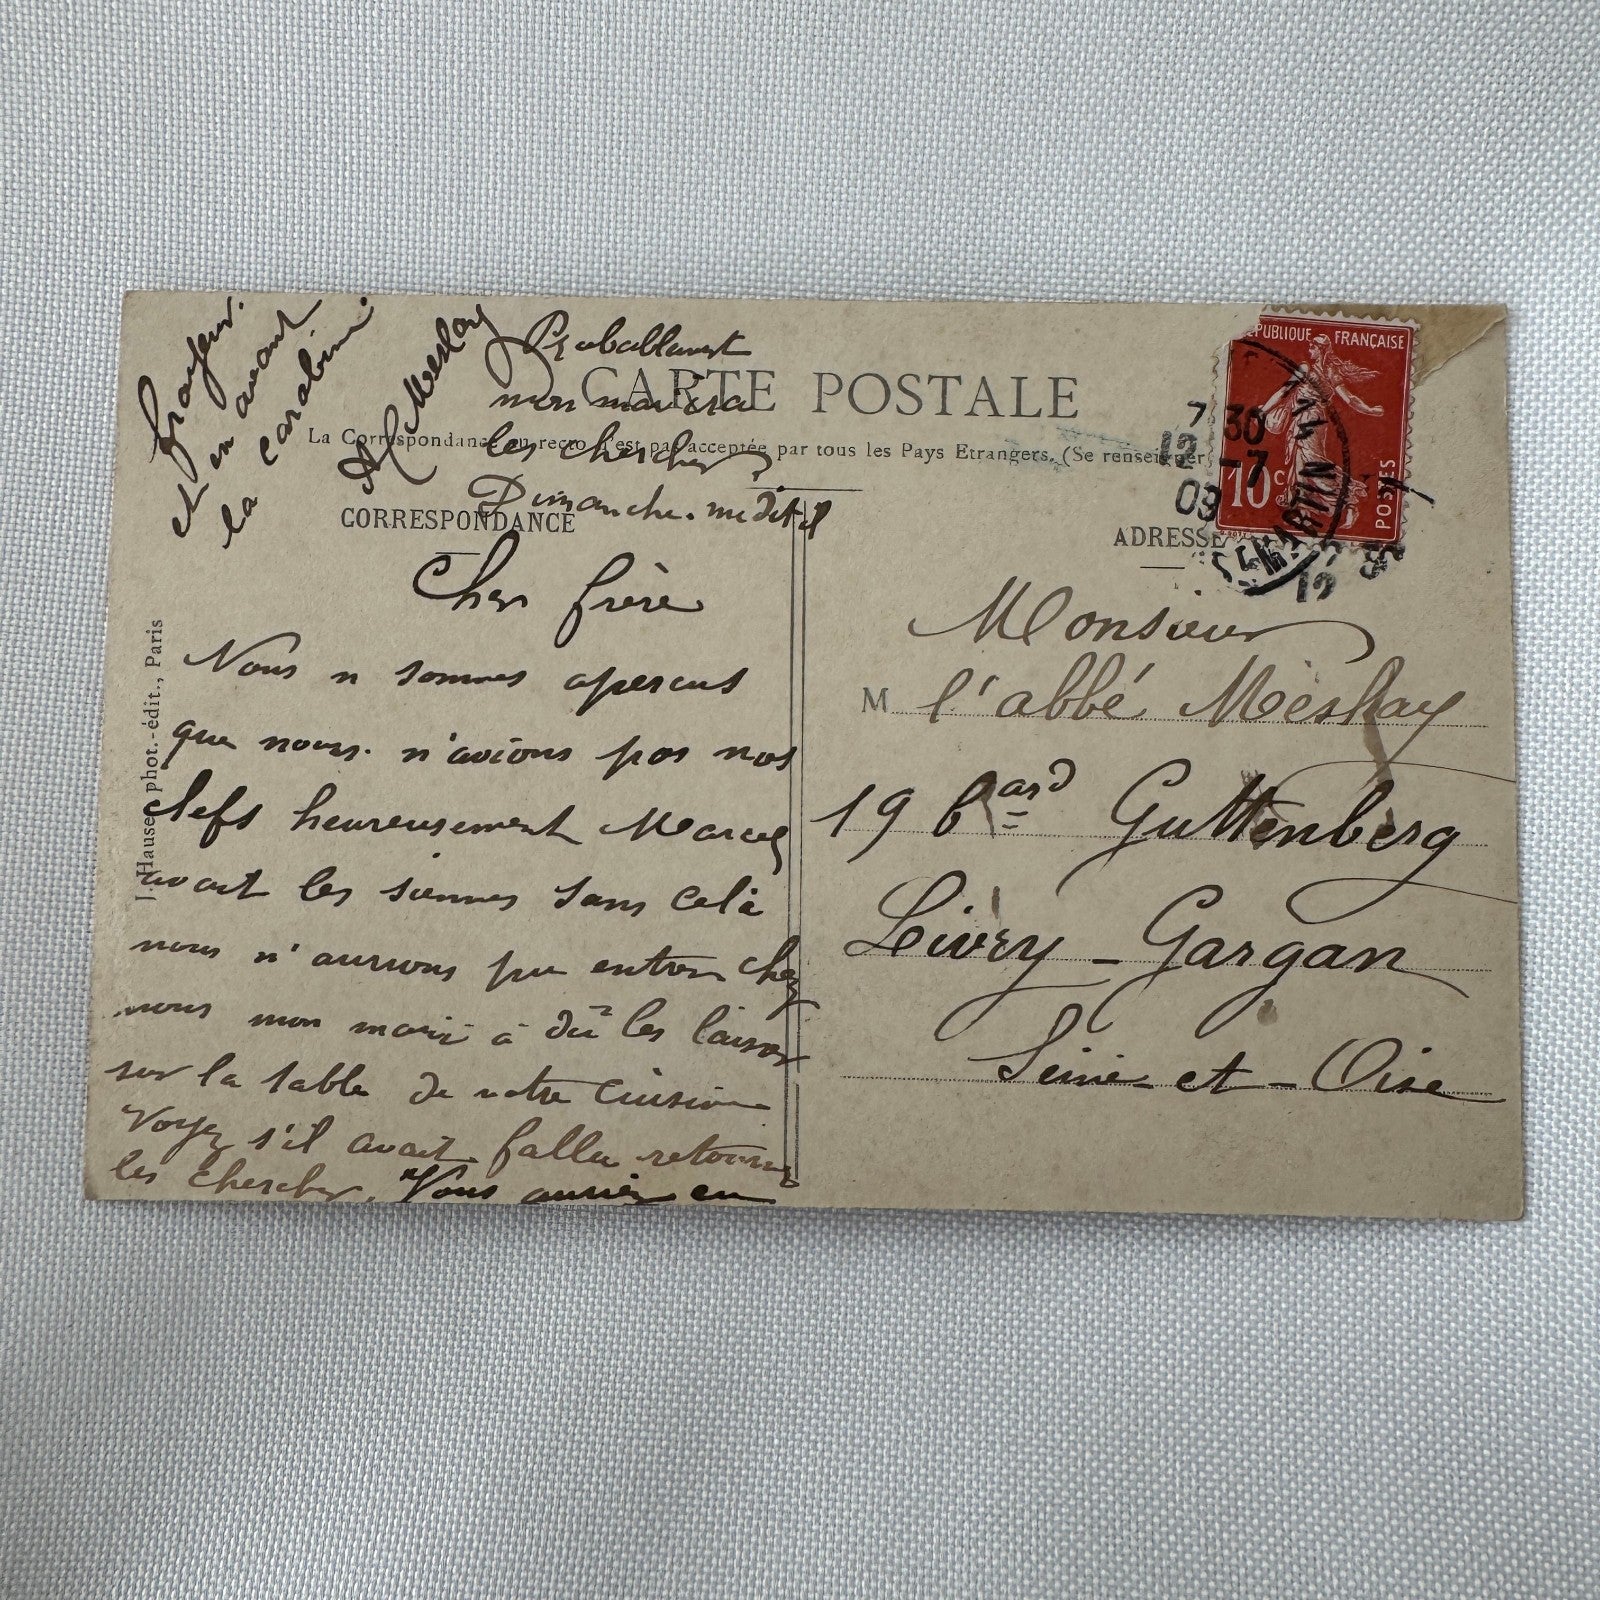 CARTE POSTALE
La Correspondance au recto n'est pas acceptée par tous les Pays Etrangers. (Se renseigner
CORRESPONDANCE
ADRESSE
J. Hauser, phot.-édit., Paris
Cher frère
Nous n sommes aperçus
que nous n'avions pas nos
clefs heureusement Marcel
avait les siennes sans celà
nous n'aurions pu entrer chez
nous mon mari à dû les laisser
sur la table de votre cuisine
Voyez s'il avait fallu retourner
les chercher. Vous auriez eu
frayeur.
et en avant
la carabine.
A Meslay
Probablement
mon mari ira
les chercher
Dimanche. me dit-il
RÉPUBLIQUE FRANÇAISE
10 c
POSTES
7 30
12 -7
09
ST MARTIN
Monsieur
M l'abbé Meslay
19 bard Guttenberg
Livry-Gargan
Seine-et-Oise